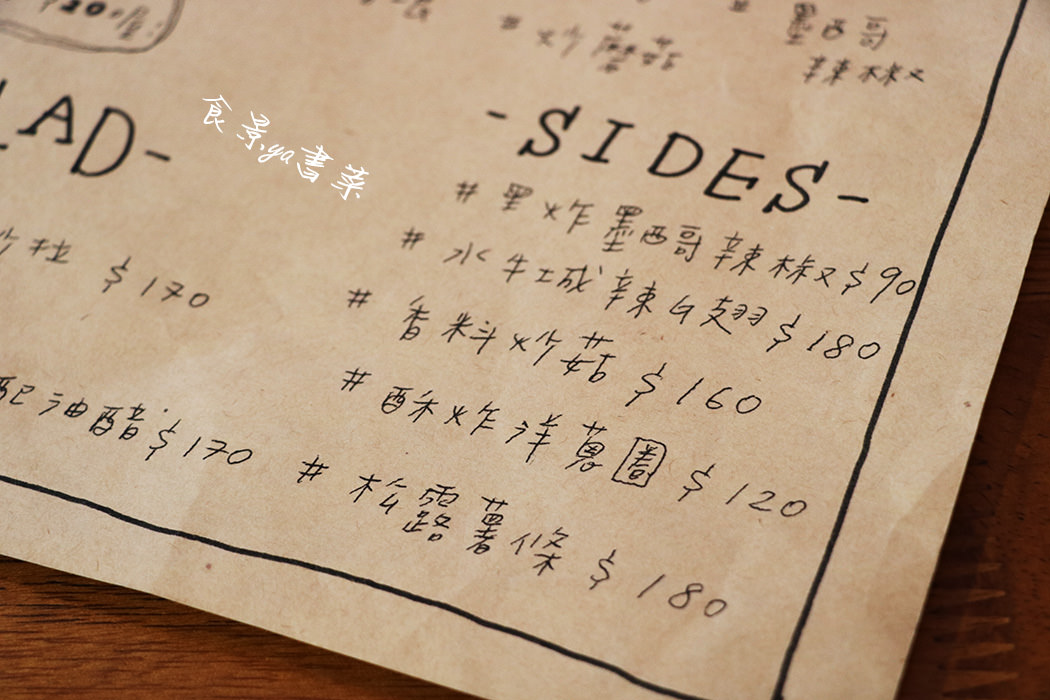 # 炒蘑菇
墨西哥
辣椒
LAD-
食景ya書菜
$170
配油醋 $170
-SIDES-
# 單炸墨西哥辣椒 $90
# 水牛城辣G翅 $180
# 香料炒菇 $160
# 酥炸洋蔥圈 $120
# 松露薯條 $180